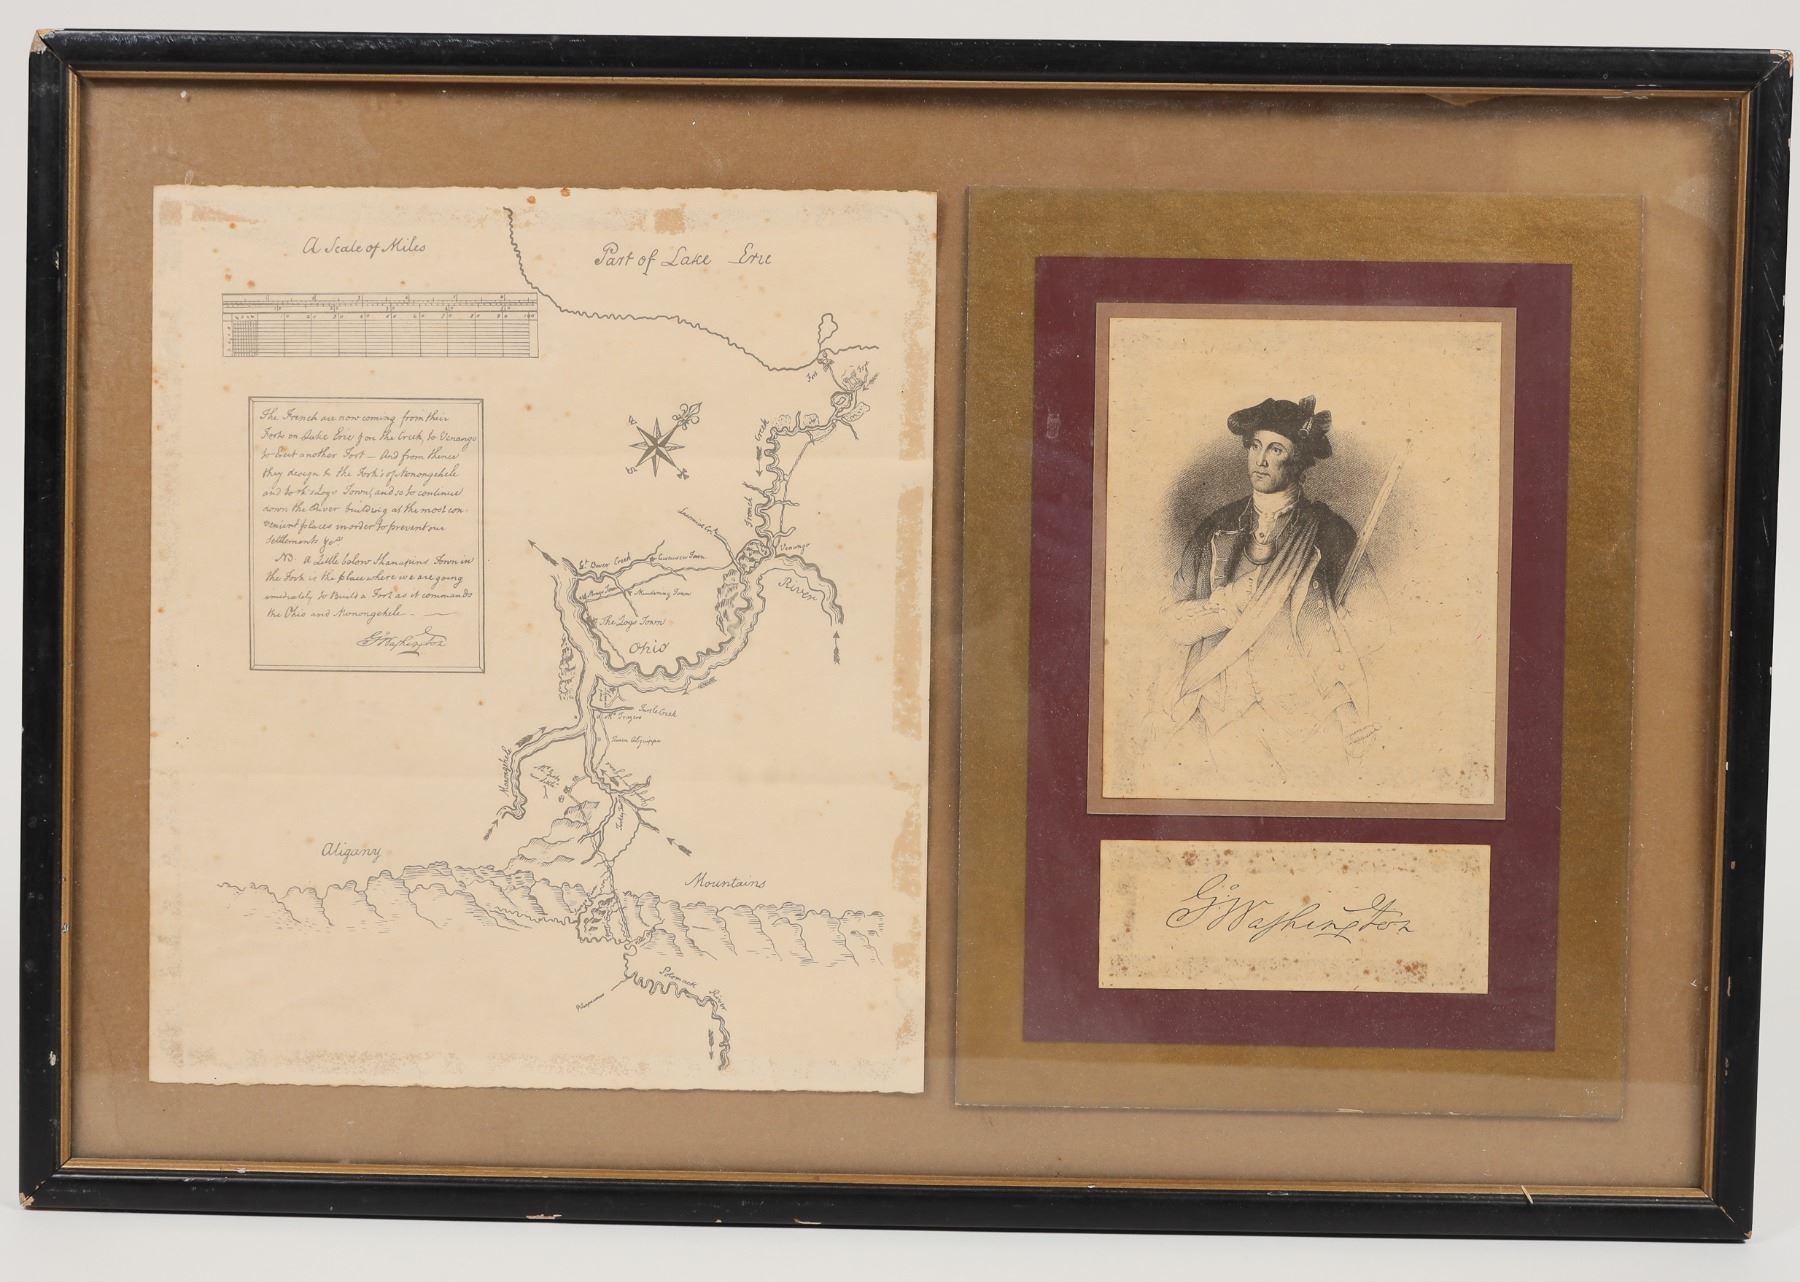 A Scale of Miles
Part of Lake Erie
The French are now coming from their
Forts on Lake Erie & on the Creek, to Venango
to Erect another Fort — And from thence
they design to the Fork's of Monongehele
and to the Logs Town, and so to continue
down the River building at the most con-
venient places in order to prevent our
Settlements &ca
NB. A Little below Shanapins Town in
the Fork is the place where we are going
imediately to Build a Fort as it commands
the Ohio and Monongehele
Go Washington
Fort
Fort
French Creek
Venango
River
Gt. Bever Creek
Cuscusca Town
Murdering Town
The Logs Town
Ohio
Turtle Creek
Mr. Frazers
Queen Aliquippa
Monongehele
Aligany
Mountains
Potomack River
Go Washington